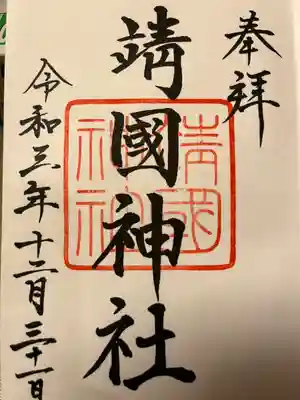 奉拝
靖國神社
靖國
神社
令和三年十二月三十一日